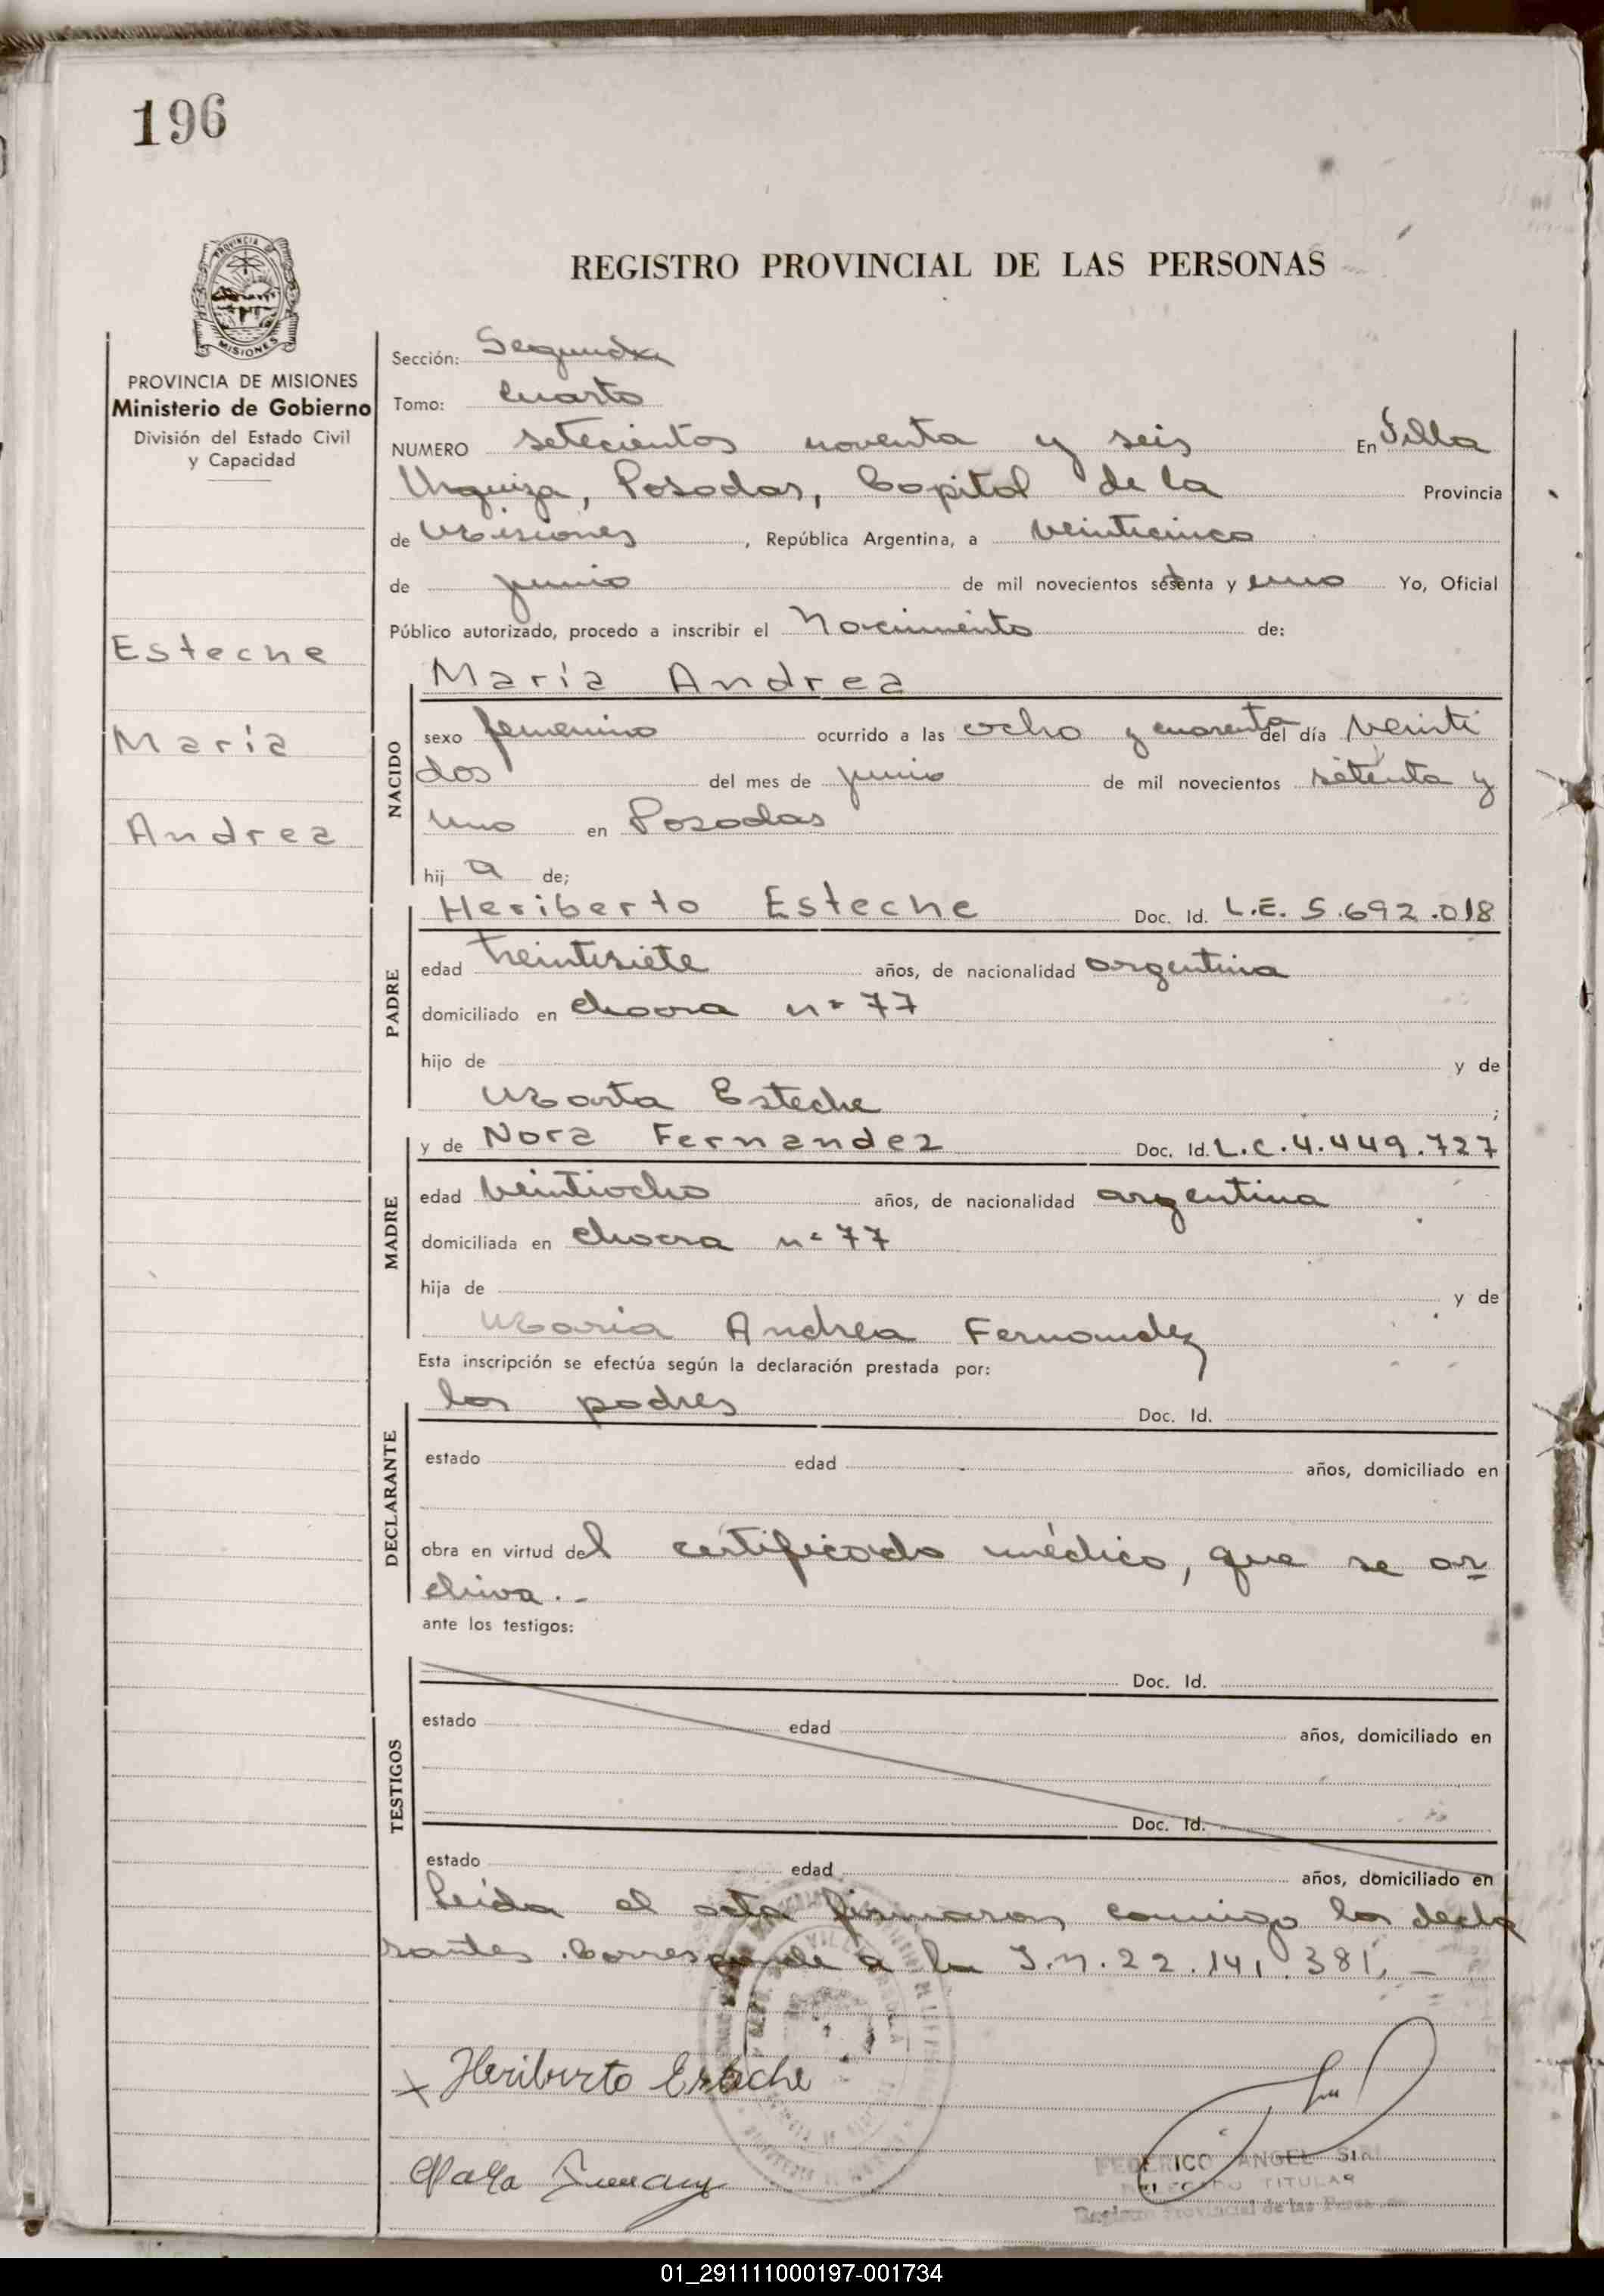 196
REGISTRO PROVINCIAL DE LAS PERSONAS
PROVINCIA DE
MISIONES
PROVINCIA DE MISIONES
Ministerio de Gobierno
División del Estado Civil
y Capacidad
Esteche
María
Andrea
Sección: Segunda
Tomo: Cuarto
NUMERO setecientos noventa y seis En Villa
Urquiza, Posadas, Capital de la Provincia
de Misiones, República Argentina, a veinticinco
de junio de mil novecientos setenta y uno Yo, Oficial
Público autorizado, procedo a inscribir el Nacimiento de:
María Andrea
NACIDO
sexo femenino ocurrido a las ocho y cuarenta del día veinti
dos del mes de junio de mil novecientos setenta y
uno en Posadas
hij a de;
Heriberto Esteche Doc. Id. L.E. 5.692.018
PADRE
edad treintisiete años, de nacionalidad argentina
domiciliado en chacra nº 77
hijo de y de
Marta Esteche ;
y de Nora Fernandez Doc. Id. L.C. 4.449.727
MADRE
edad veintiocho años, de nacionalidad argentina
domiciliada en chacra nº 77
hija de y de
Maria Andrea Fernandez
Esta inscripción se efectúa según la declaración prestada por:
los padres Doc. Id.
DECLARANTE
estado edad años, domiciliado en
obra en virtud del certificado médico, que se ar
chiva.-
ante los testigos:
TESTIGOS
Doc. Id.
estado edad años, domiciliado en
Doc. Id.
estado edad años, domiciliado en
Leída el acta firmaron conmigo los decla
rantes. Corresponde a la I.N. 22.141.381.-
x Heriberto Esteche
FEDERICO ANGEL SIRI
TITULAR
Registro Provincial de las
01_291111000197-001734